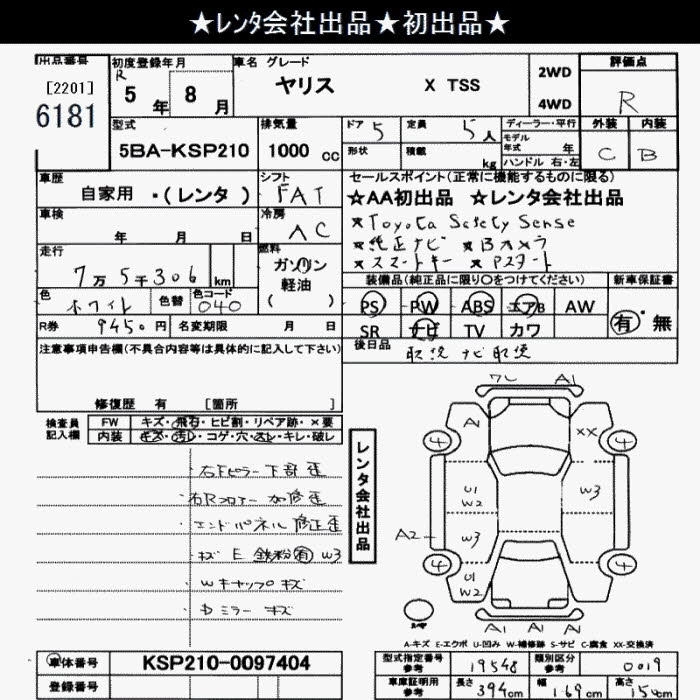 ★レンタ会社出品★初出品★
出品番号 初度登録年月 車名 グレード 評価点
[2201] R 5年 8月 ヤリス X TSS 2WD R
6181 4WD
型式 排気量 ドア 5 定員 5人 ディーラー・平行 外装 内装
5BA-KSP210 1000cc 形状 積載 kg モデル年式 年 C B
ハンドル 右・左
車歴 シフト セールスポイント(正常に機能するものに限る)
自家用・(レンタ) FAT ☆AA初出品 ☆レンタ会社出品
車検 冷房 ★Toyota Safety Sense
年 月 日 AC ★純正ナビ ★Bカメラ
走行 燃料 ★スマートキー ★Pスタート
7万5千306 km ガソリン 装備品(純正品に限り〇をつけてください) 新車保証書
軽油
色 ホワイト 色替 色コード 040 ( ) PS PW ABS エアB AW 有・無
R券 9450円 名変期限 月 日 SR ナビ TV カワ
注意事項申告欄(不具合内容等は具体的に記入して下さい) 後日品 取説 ナビ取説
修復歴 有 [箇所 ]
検査員記入欄 FW キズ・飛石・ヒビ割・リペア跡・×要
内装 キズ・汚レ・コゲ・穴・スレ・キレ・破レ
ワレ A1
A1 XX
4 4
U1 W2 W3
A2 W3
4 4
U1 W2
A1 A1 A1
レンタ会社出品
・右Fピラー下部歪
・右Rフロアー加修歪
・エンドパネル修正歪
・キズ E 鉄粉有 W3
・Wキャップキズ
・Dミラーキズ
A-キズ E-エクボ U-凹み W-補修跡 S-サビ C-腐食 XX-交換済
車体番号 KSP210-0097404 型式指定番号 参考 19548 類別区分 参考 0019
登録番号 車庫証明用 参考 長さ 394cm 幅 169cm 高さ 150cm